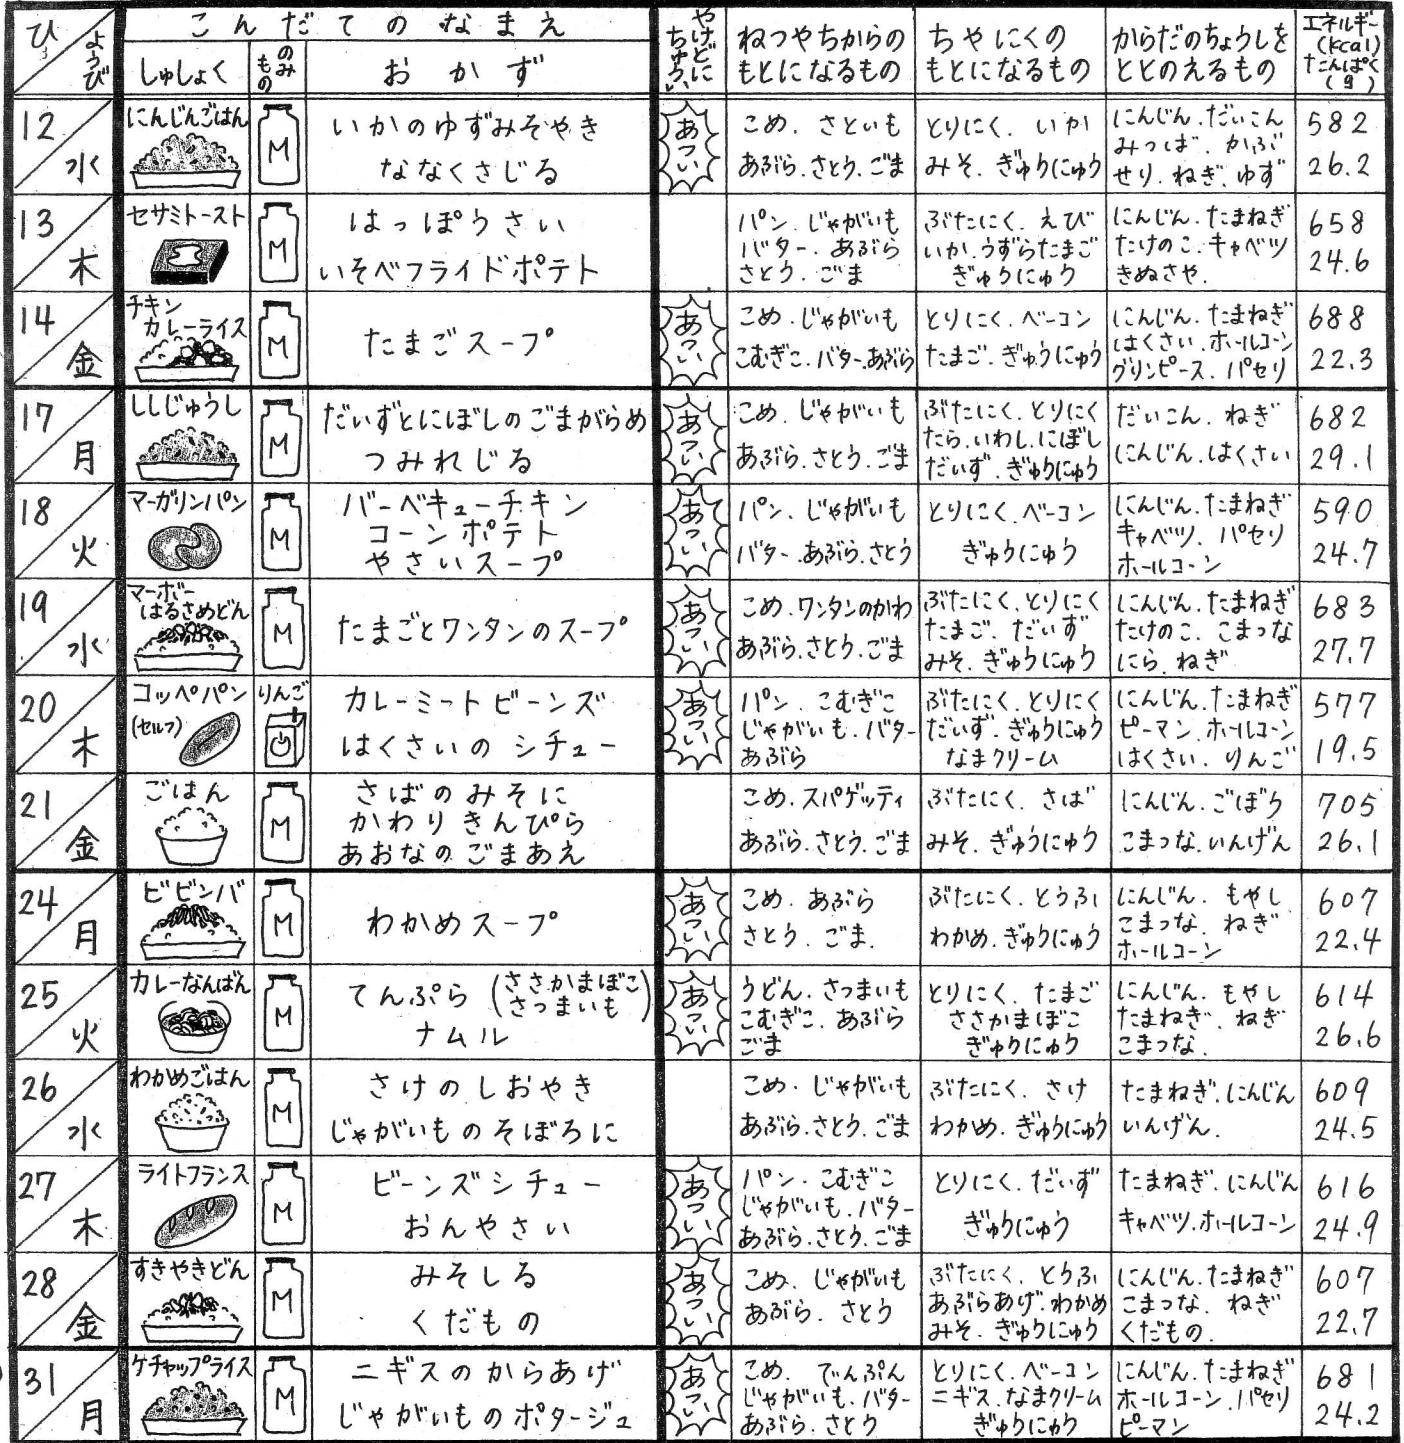 ひ ようび
こんだてのなまえ
しゅしょく
のみもの
おかず
やけどにちゅうい
ねつやちからの
もとになるもの
ちやにくの
もとになるもの
からだのちょうしを
ととのえるもの
エネルギー
(kcal)
たんぱく
(g)
12 水
にんじんごはん
M
いかのゆずみそやき
ななくさじる
あつい
こめ. さといも
あぶら. さとう. ごま
とりにく. いか
みそ. ぎゅうにゅう
にんじん. だいこん
みつば. かぶ
せり. ねぎ. ゆず
582
26.2
13 木
セサミトースト
M
はっぽうさい
いそべフライドポテト
パン. じゃがいも
バター. あぶら
さとう. ごま
ぶたにく. えび
いか. うずらたまご
ぎゅうにゅう
にんじん. たまねぎ
たけのこ. キャベツ
きぬさや.
658
24.6
14 金
チキン
カレーライス
M
たまごスープ
あつい
こめ. じゃがいも
こむぎこ. バター. あぶら
とりにく. ベーコン
たまご. ぎゅうにゅう
にんじん. たまねぎ
はくさい. ホールコーン
グリンピース. パセリ
688
22.3
17 月
ししじゅうし
M
だいずとにぼしのごまがらめ
つみれじる
あつい
こめ. じゃがいも
あぶら. さとう. ごま
ぶたにく. とりにく
たら. いわし. にぼし
だいず. ぎゅうにゅう
だいこん. ねぎ
にんじん. はくさい
682
29.1
18 火
マーガリンパン
M
バーベキューチキン
コーンポテト
やさいスープ
あつい
パン. じゃがいも
バター. あぶら. さとう
とりにく. ベーコン
ぎゅうにゅう
にんじん. たまねぎ
キャベツ. パセリ
ホールコーン
590
24.7
19 水
マーボー
はるさめどん
M
たまごとワンタンのスープ
あつい
こめ. ワンタンのかわ
あぶら. さとう. ごま
ぶたにく. とりにく
たまご. だいず
みそ. ぎゅうにゅう
にんじん. たまねぎ
たけのこ. こまつな
にら. ねぎ
683
27.7
20 木
コッペパン
(セルフ)
りんご
カレーミートビーンズ
はくさいのシチュー
あつい
パン. こむぎこ
じゃがいも. バター
あぶら
ぶたにく. とりにく
だいず. ぎゅうにゅう
なまクリーム
にんじん. たまねぎ
ピーマン. ホールコーン
はくさい. りんご
577
19.5
21 金
ごはん
M
さばのみそに
かわりきんぴら
あおなのごまあえ
こめ. スパゲッティ
あぶら. さとう. ごま
ぶたにく. さば
みそ. ぎゅうにゅう
にんじん. ごぼう
こまつな. いんげん
705
26.1
24 月
ビビンバ
M
わかめスープ
あつい
こめ. あぶら
さとう. ごま.
ぶたにく. とうふ
わかめ. ぎゅうにゅう
にんじん. もやし
こまつな. ねぎ
ホールコーン
607
22.4
25 火
カレーなんばん
M
てんぷら(ささかまぼこ
さつまいも)
ナムル
あつい
うどん. さつまいも
こむぎこ. あぶら
ごま
とりにく. たまご
ささかまぼこ
ぎゅうにゅう
にんじん. もやし
たまねぎ. ねぎ
こまつな.
614
26.6
26 水
わかめごはん
M
さけのしおやき
じゃがいものそぼろに
こめ. じゃがいも
あぶら. さとう. ごま
ぶたにく. さけ
わかめ. ぎゅうにゅう
たまねぎ. にんじん
いんげん.
609
24.5
27 木
ライトフランス
M
ビーンズシチュー
おんやさい
あつい
パン. こむぎこ
じゃがいも. バター
あぶら. さとう. ごま
とりにく. だいず
ぎゅうにゅう
たまねぎ. にんじん
キャベツ. ホールコーン
616
24.9
28 金
すきやきどん
M
みそしる
くだもの
あつい
こめ. じゃがいも
あぶら. さとう
ぶたにく. とうふ
あぶらあげ. わかめ
みそ. ぎゅうにゅう
にんじん. たまねぎ
こまつな. ねぎ
くだもの.
607
22.7
31 月
ケチャップライス
M
ニギスのからあげ
じゃがいものポタージュ
あつい
こめ. でんぷん
じゃがいも. バター
あぶら. さとう
とりにく. ベーコン
ニギス. なまクリーム
ぎゅうにゅう
にんじん. たまねぎ
ホールコーン. パセリ
ピーマン
681
24.2